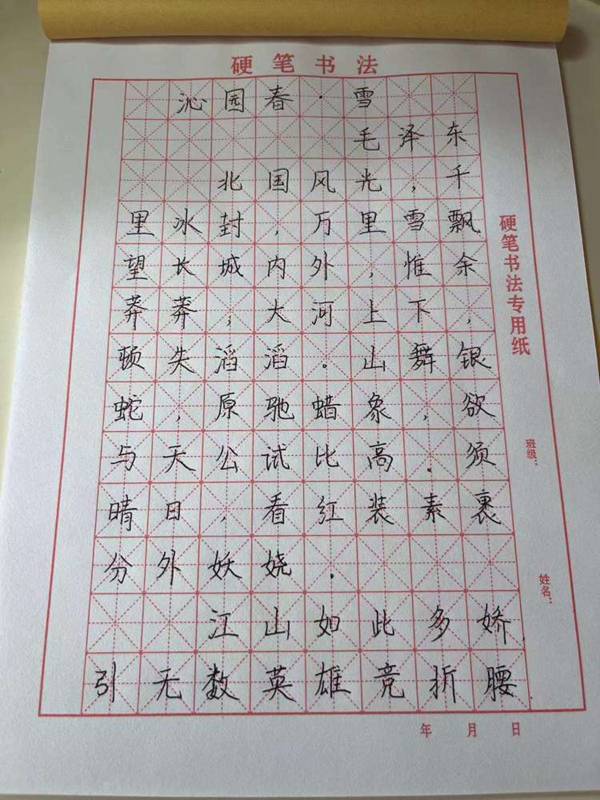 硬笔书法
沁园春·雪
毛泽东
北国风光，千
里冰封，万里雪飘
望长城内外，惟余
莽莽；大河上下，
顿失滔滔。山舞银
蛇，原驰蜡象，欲
与天公试比高。须
晴日，看红装素裹
分外妖娆。
江山如此多娇
引无数英雄竞折腰
硬笔书法专用纸
班级：
姓名：
年 月 日